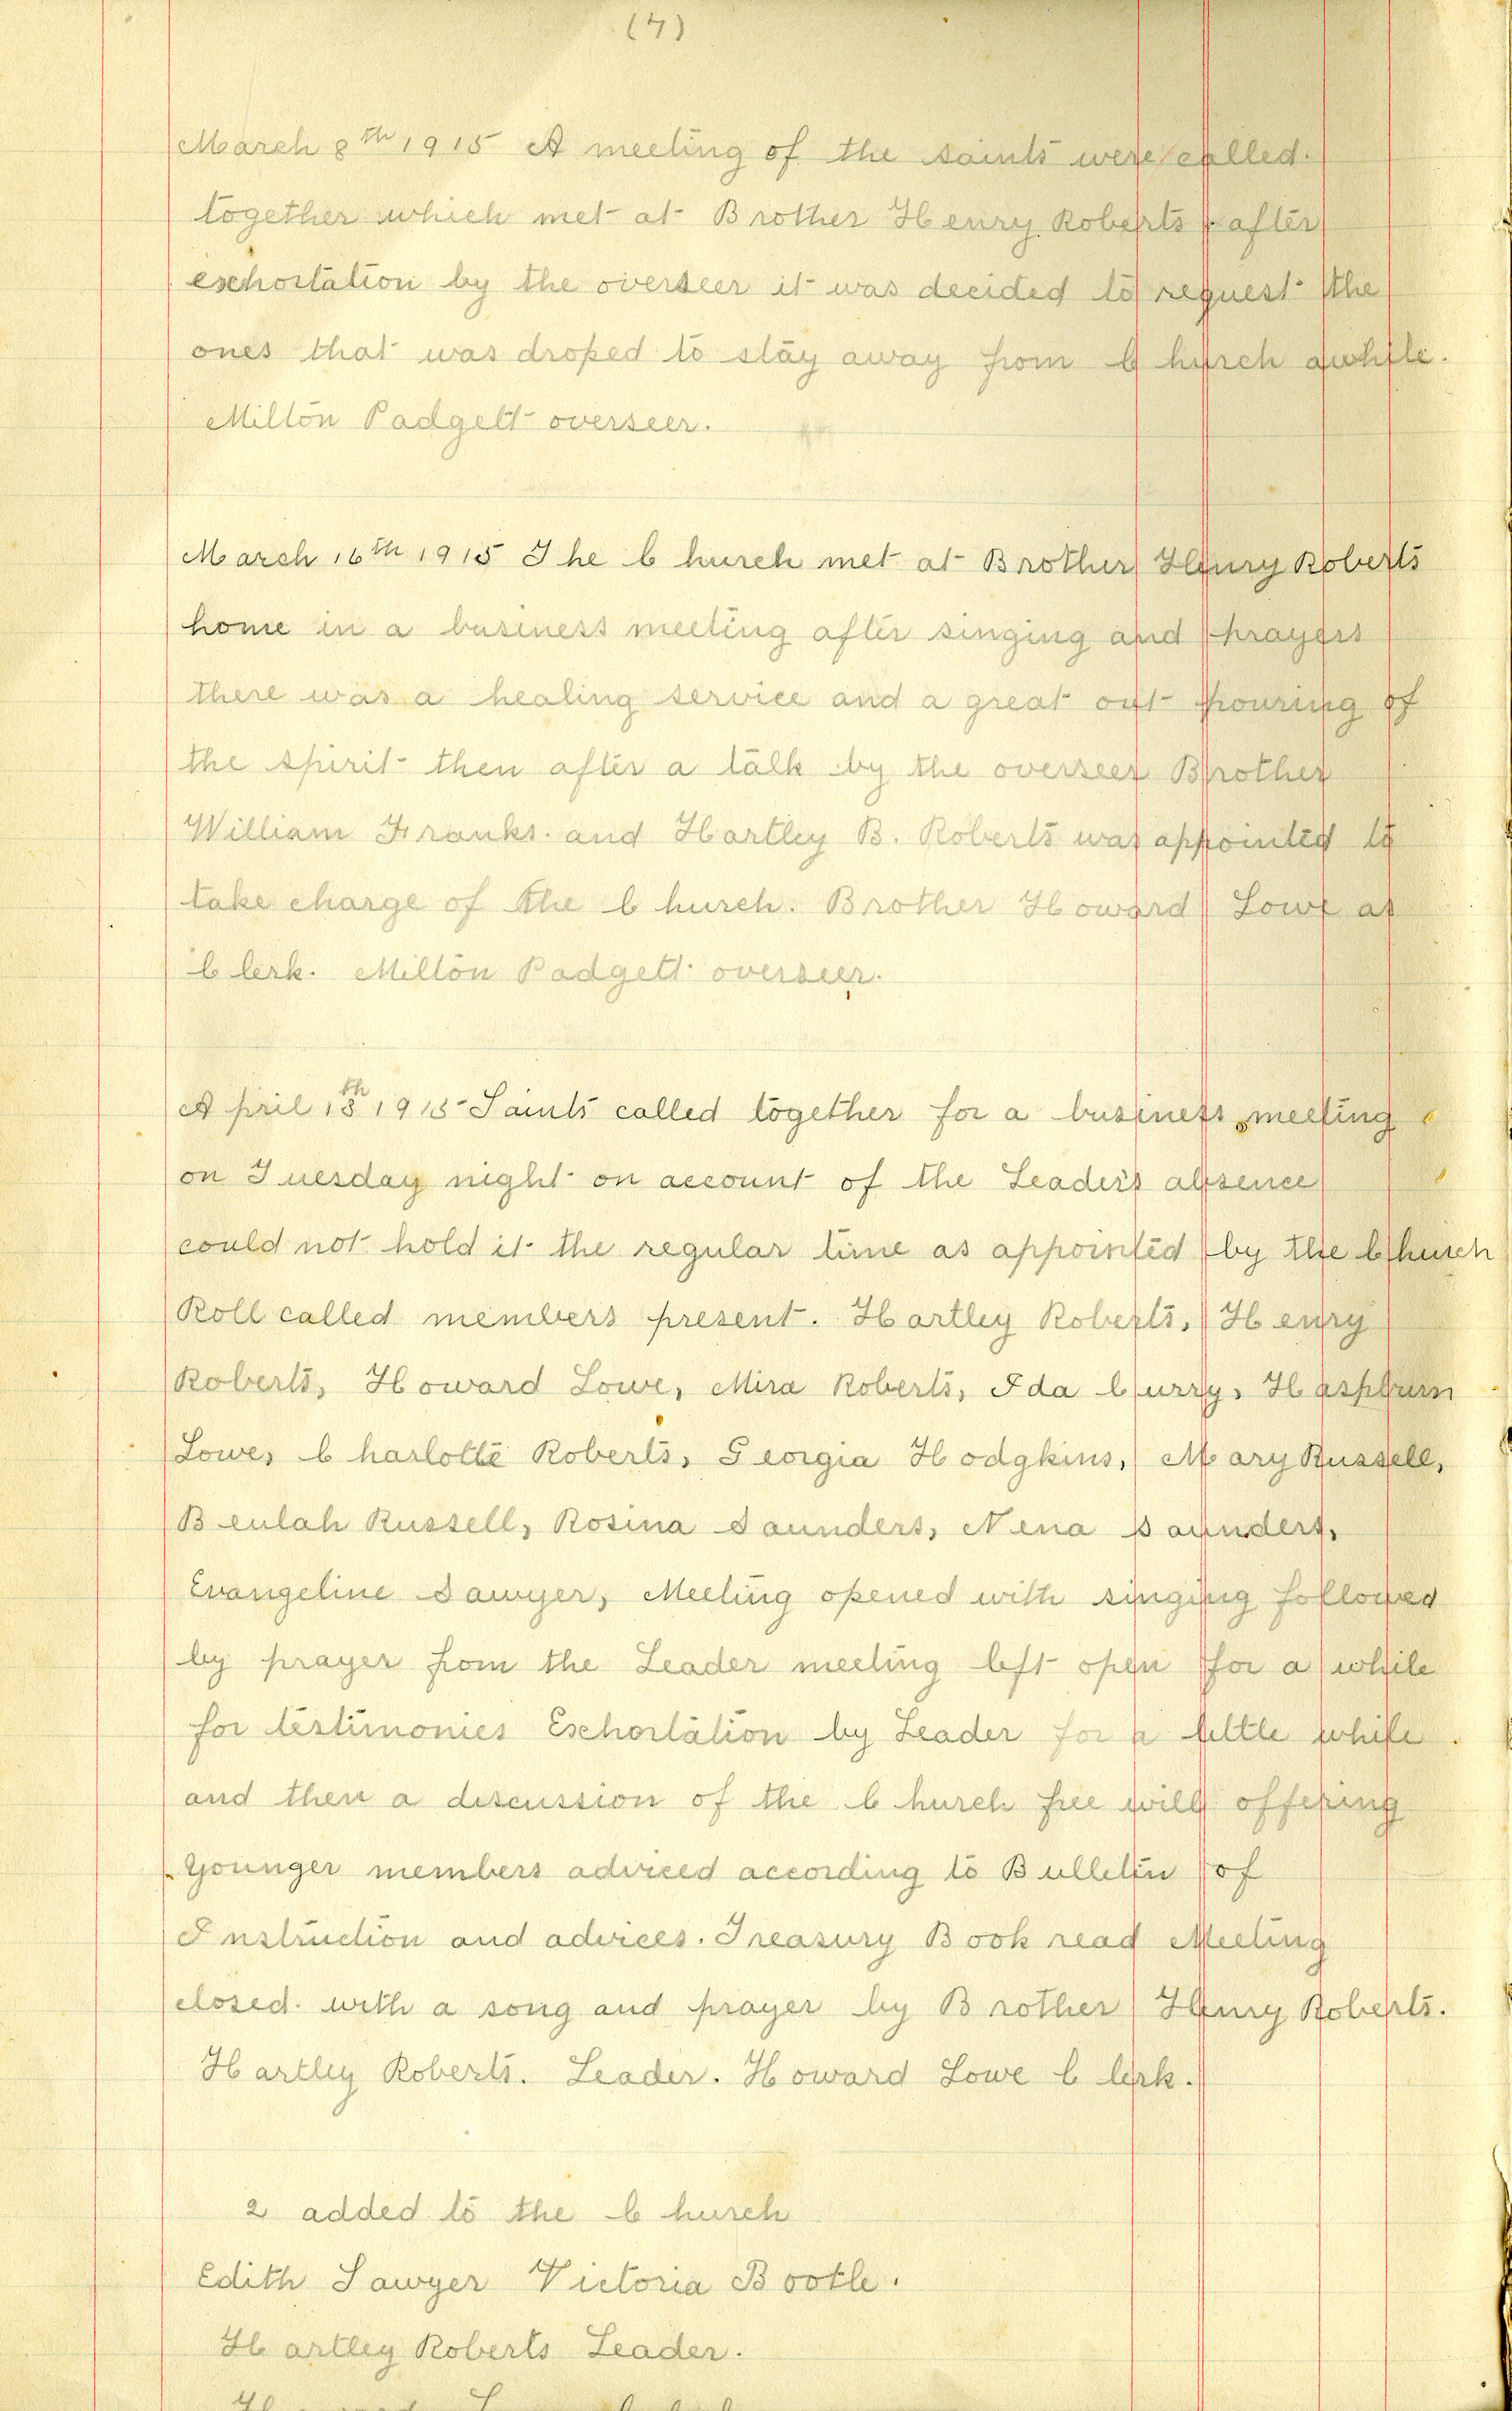 (7)
March 8th 1915 A meeting of the saints were called
together which met at Brother Henry Roberts & after
exhortation by the overseer it was decided to request the
ones that was droped to stay away from Church awhile.
Milton Padgett overseer.
March 16th 1915 The Church met at Brother Henry Roberts
home in a business meeting after singing and prayers
there was a healing service and a great out pouring of
the spirit then after a talk by the overseer Brother
William Franks. and Hartley B. Roberts was appointed to
take charge of the Church. Brother Howard Lowe as
Clerk. Milton Padgett overseer.
April 13th 1915 Saints called together for a business meeting
on Tuesday night on account of the Leader's absence
could not hold it the regular time as appointed by the Church
Roll called members present. Hartley Roberts, Henry
Roberts, Howard Lowe, Mira Roberts, Ida Curry, Haspburn
Lowe, Charlotte Roberts, Georgia Hodgkins, Mary Russell,
Beulah Russell, Rosina Saunders, Nena Saunders,
Evangeline Sawyer, Meeting opened with singing followed
by prayer from the Leader meeting left open for a while
for testimonies Exhortation by Leader for a little while
and then a discussion of the Church free will offering
Younger members adviced according to Bulletin of
Instruction and advices. Treasury Book read Meeting
closed with a song and prayer by Brother Henry Roberts.
Hartley Roberts. Leader. Howard Lowe Clerk.
2 added to the Church
Edith Sawyer Victoria Bootle.
Hartley Roberts Leader.